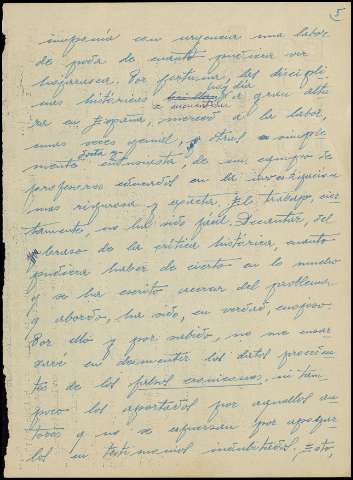 5
imponía con urgencia una labor
de poda de cuanto pudiera ser
hojarasca. Por fortuna, las discipli
nas históricas hoy día
se encuentran a gran altu
ra en España, merced a la labor,
unas veces genial, y otras simple
mente docta y entusiasta, de un equipo de
profesores educados en la investigación
mas rigurosa y escueta. El trabajo, cier
tamente, no ha sido fácil. Decantar, del
de la crítica histórica, cuanto
pudiera haber de cierto en lo mucho
q se ha escrito acerca del problema
q abordo, ha sido, en verdad, enojoso.
Por ello y por sabido, no me ensa
ñaré en desmentir los datos proceden
tes de los falsos cronicones, ni tam
poco los aportados por aquellos au
tores q no se esfuerzan por apoyar
los en testimonios indubitados. Esto,